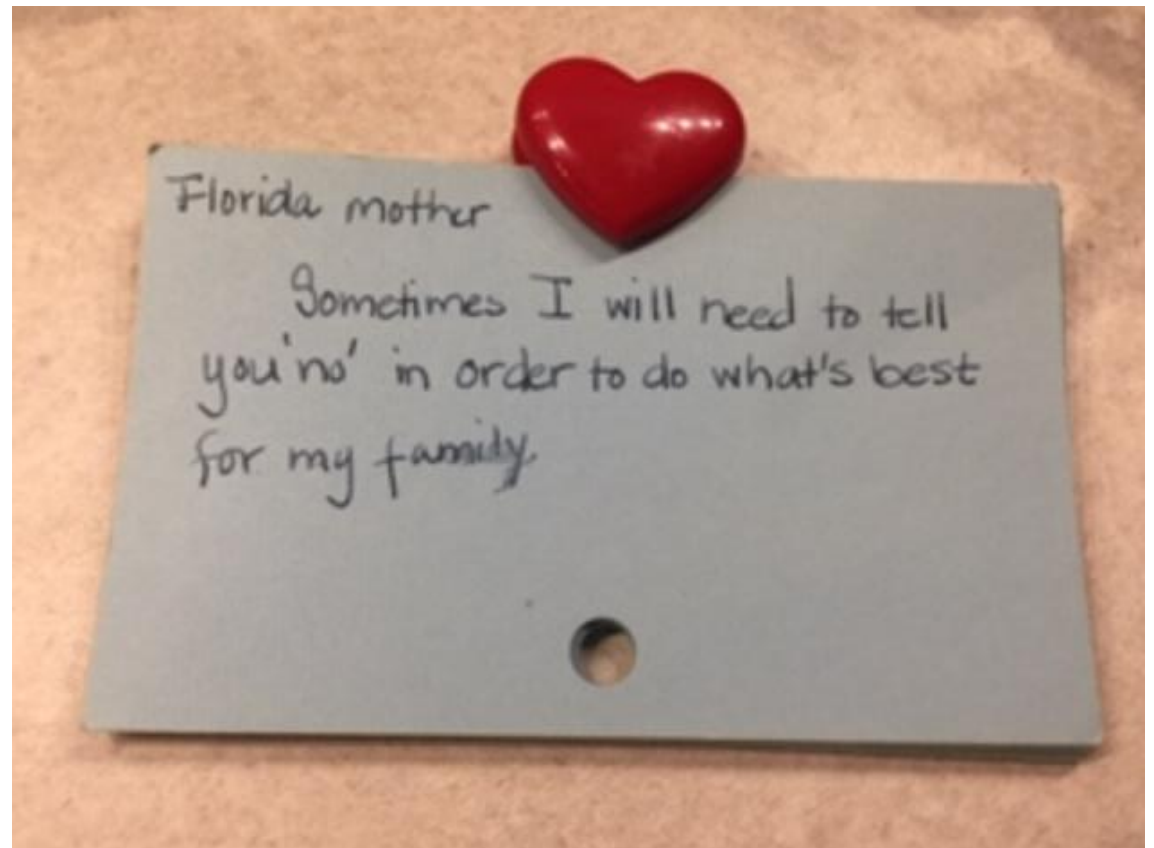 Florida mother
Sometimes I will need to tell
you 'no' in order to do what's best
for my family.